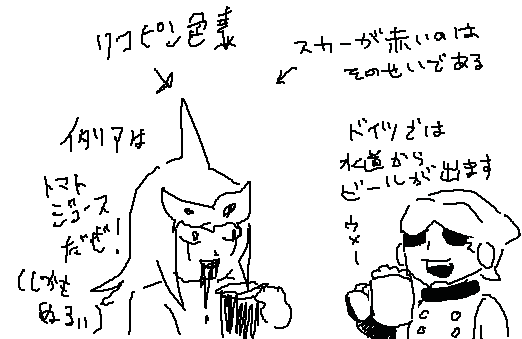 リコピン色素
スカーが赤いのは
そのせいである
イタリアは
トマト
ジュース
だぜ!
(しかも
ぬるい)
ドイツでは
水道から
ビールが出ます
ウメー